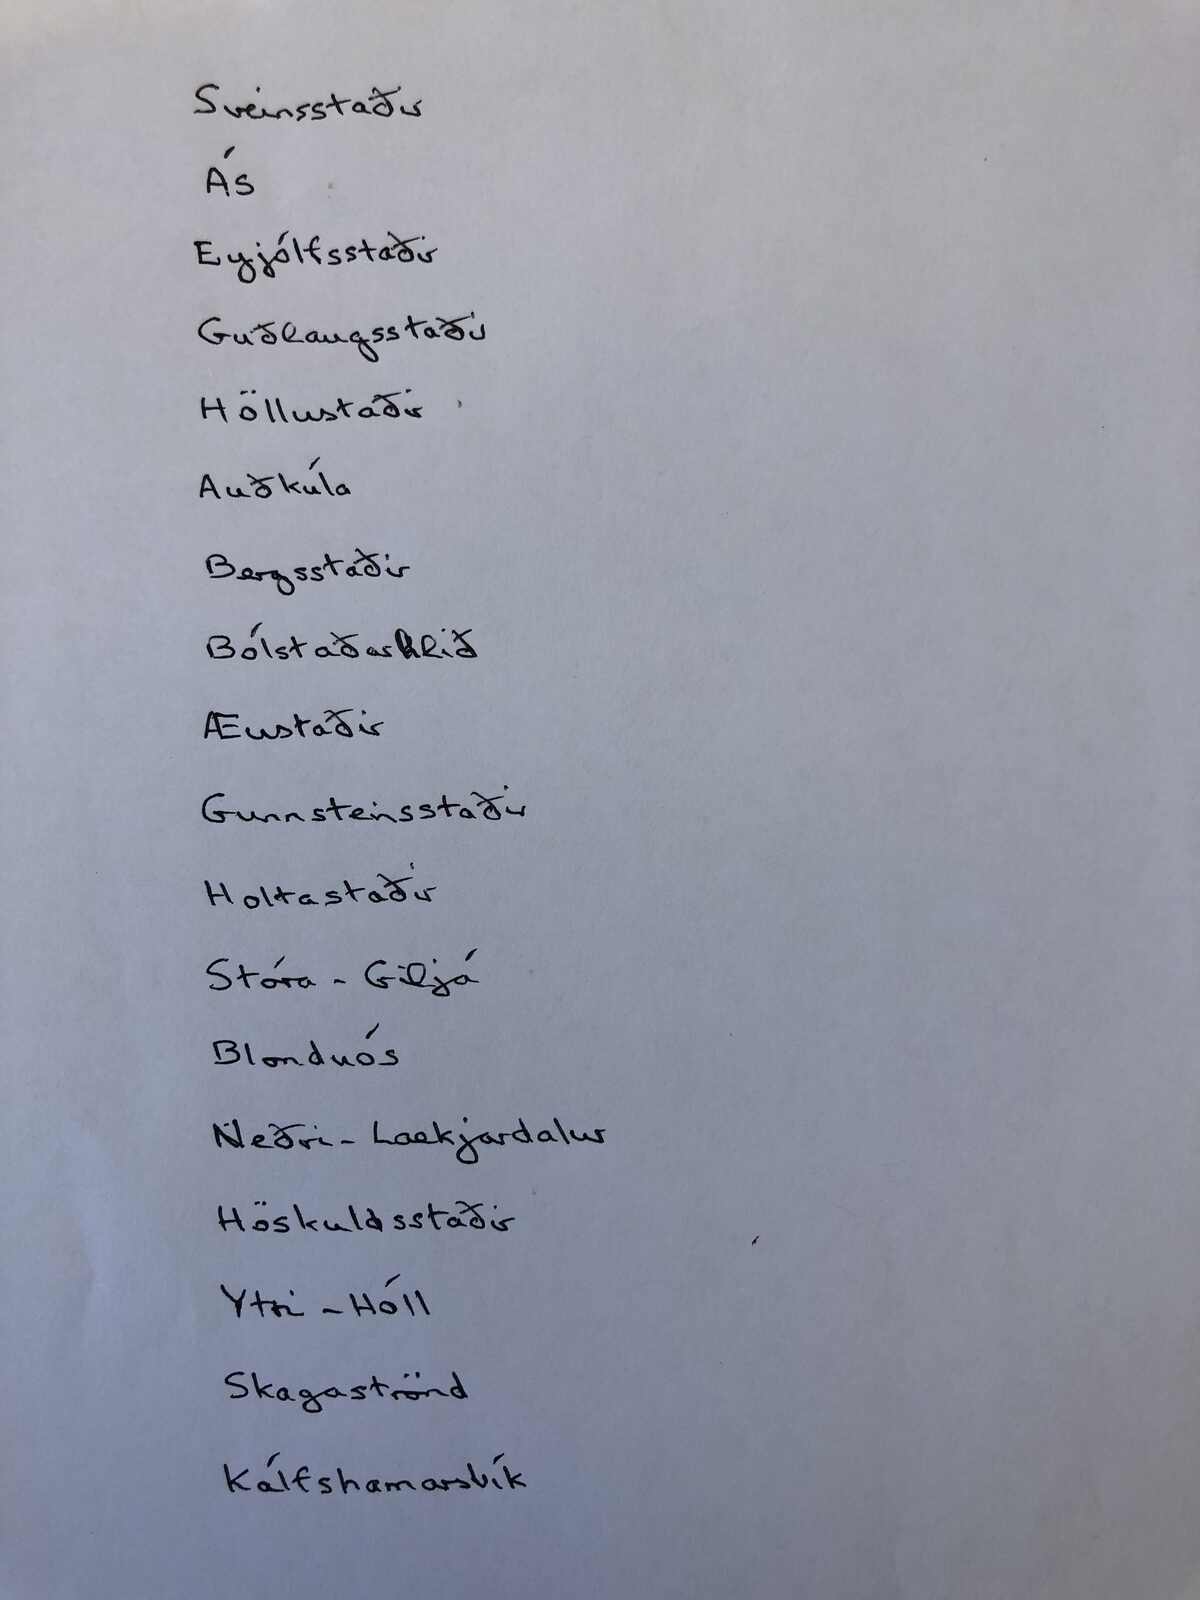 Sveinsstaðir
Ás
Eyjólfsstaðir
Guðlaugsstaðir
Höllustaðir
Auðkúla
Bergsstaðir
Bólstaðarhlíð
Æustaðir
Gunnsteinsstaðir
Holtastaðir
Stóra - Giljá
Blonduós
Neðri - Laekjardalur
Höskuldsstaðir
Ytri - Hóll
Skagaströnd
Kálfshamarsvík